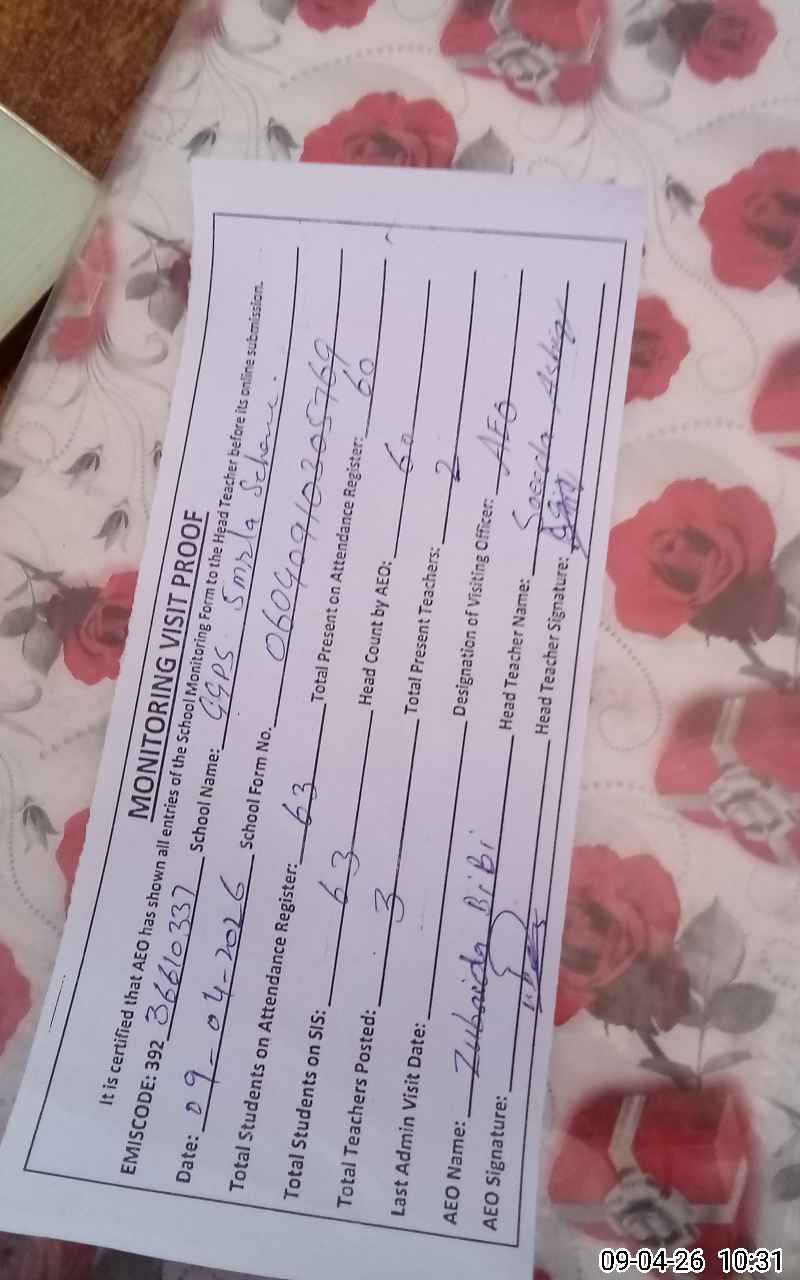 MONITORING VISIT PROOF
It is certified that AEO has shown all entries of the School Monitoring Form to the Head Teacher before its online submission.
EMISCODE: 392 36610337 School Name: GGPS Smirla Schani.
Date: 09-04-2026 School Form No. 06040910305769
Total Students on Attendance Register: 63 Total Present on Attendance Register: 60
Total Students on SIS: 63 Head Count by AEO: 60
Total Teachers Posted: 3 Total Present Teachers: 2
Last Admin Visit Date: Designation of Visiting Officer: AEO
AEO Name: Zubaida Bibi Head Teacher Name: Saeeda
AEO Signature: Head Teacher Signature:
09-04-26 10:31